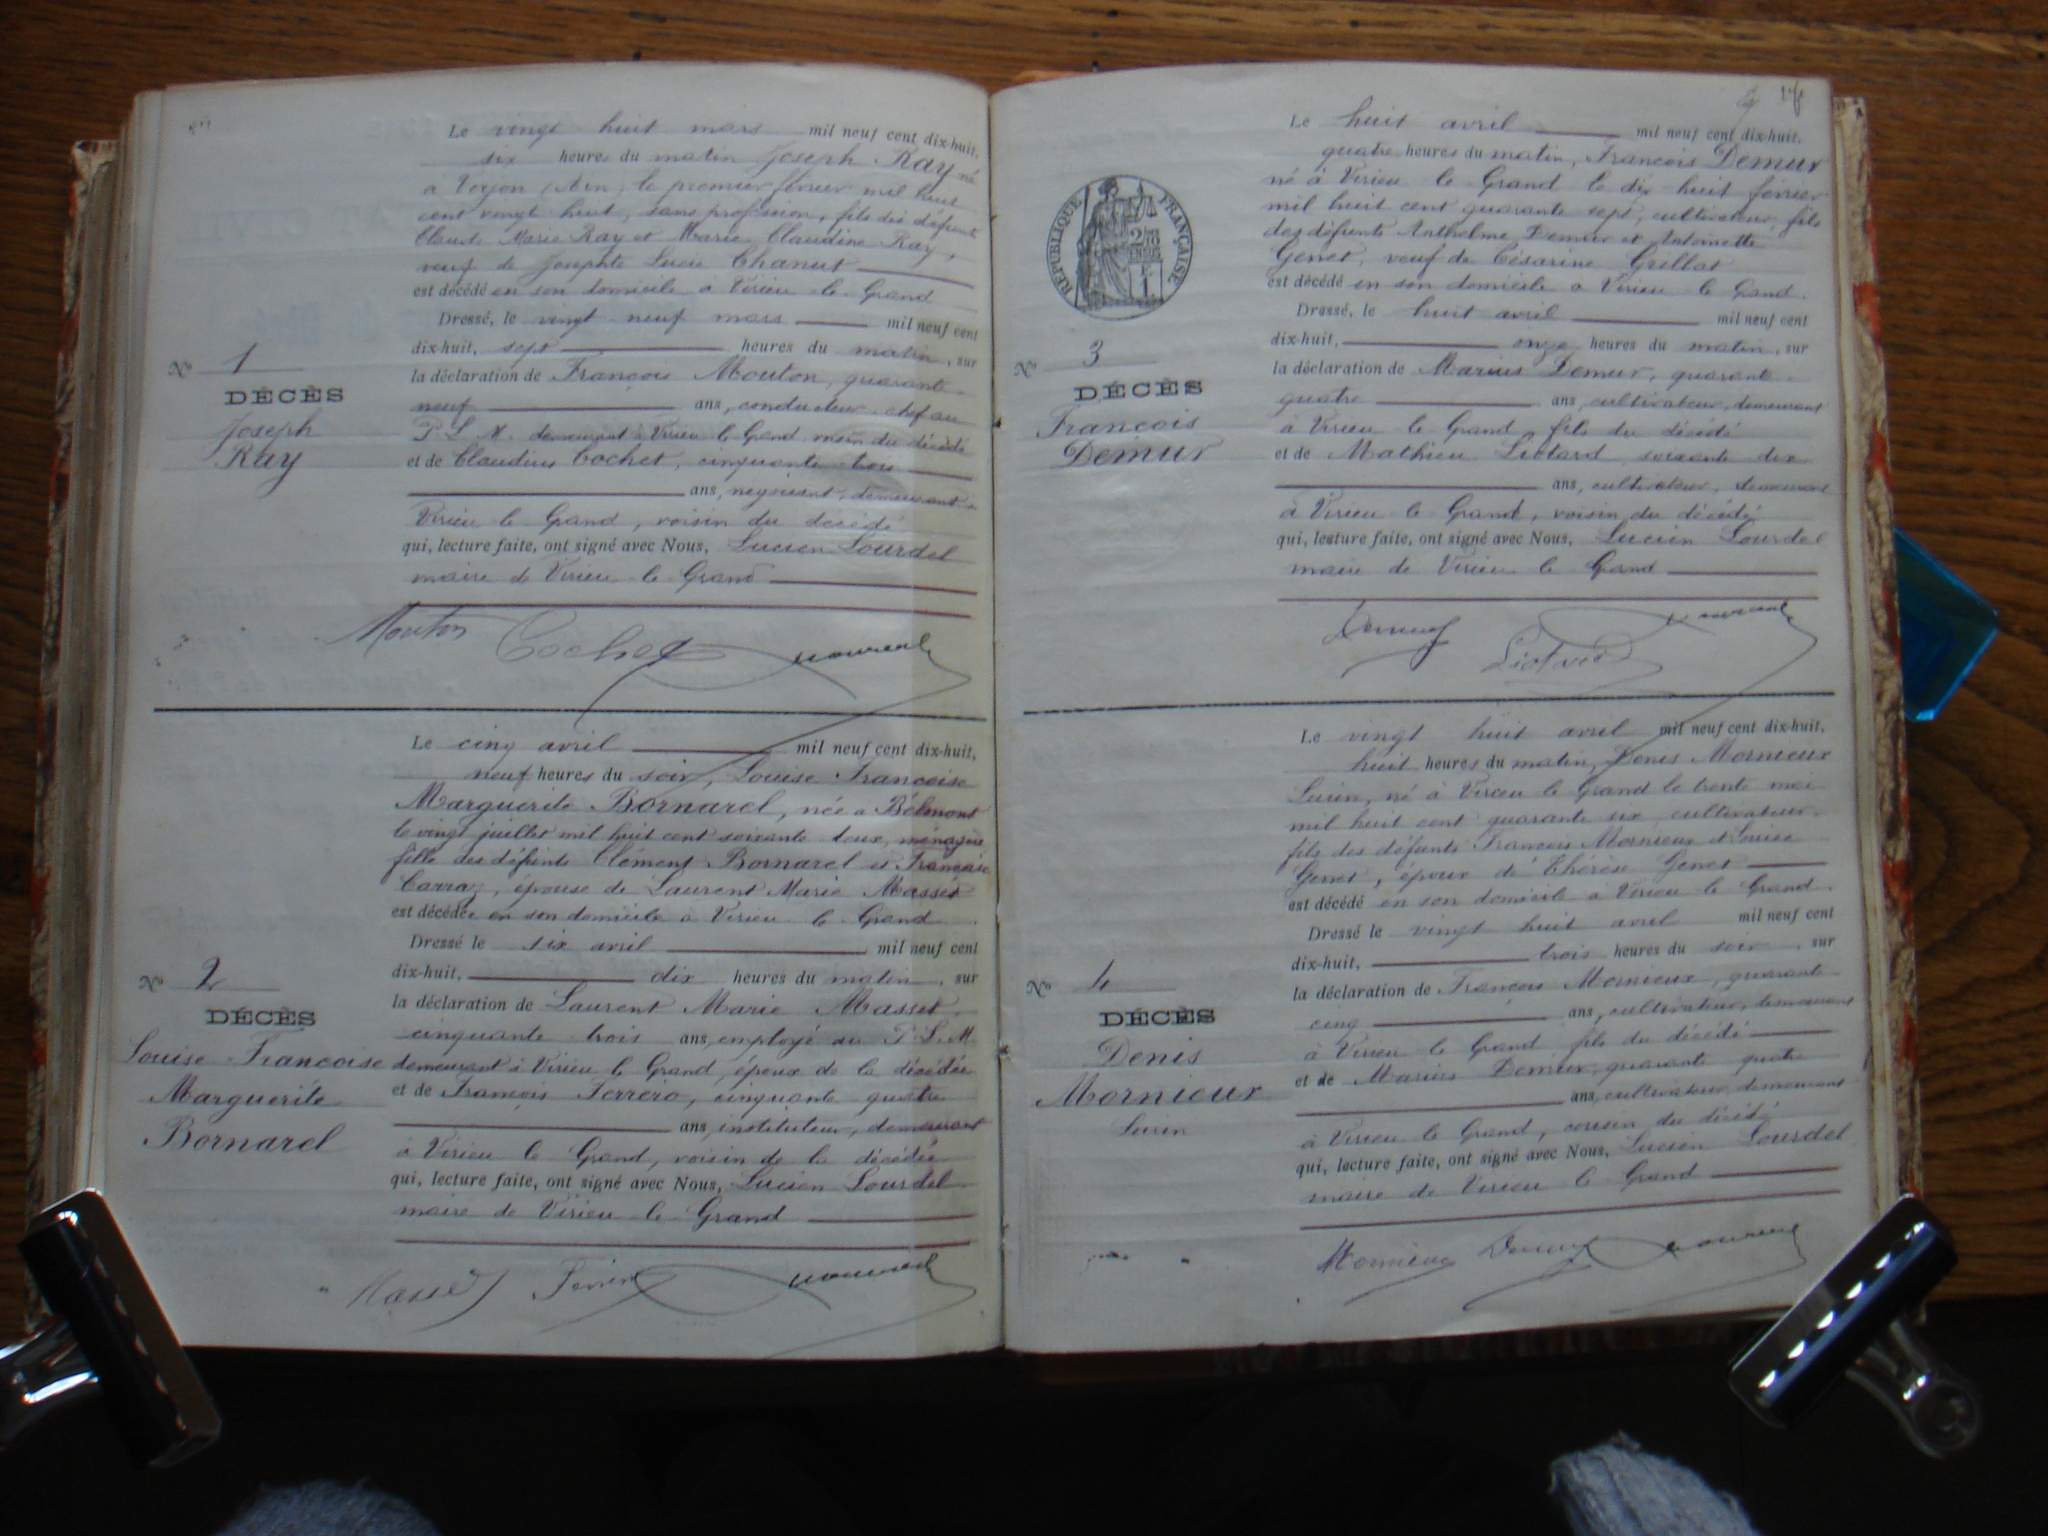 Le vingt huit mars mil neuf cent dix-huit,
six heures du matin Joseph Ray né
a (Ain) le premier février mil huit
cent vingt huit, sans profession, fils des défunts
Claude Marie Ray et Marie Claudine Ray,
veuf de Josephte Lucie Chanut
est décédé en son domicile a Virieu le Grand
Dressé, le vingt neuf mars mil neuf cent
dix-huit, sept heures du matin, sur
la déclaration de François Mouton, quarante
neuf ans, conducteur chef au
P. L. M. demeurant à Virieu le Grand voisin du décédé
et de Claudius Cochet, cinquante trois
ans, négociant, demeurant a
Virieu le Grand, voisin du décédé
qui, lecture faite, ont signé avec Nous, Lucien Lourdel
maire de Virieu le Grand
No 1
DÉCÈS
Joseph
Ray
Mouton Cochet
Le cinq avril mil neuf cent dix-huit,
neuf heures du soir, Louise Françoise
Marguerite Bornarel, née a Belmont
le vingt juillet mil huit cent soixante deux, ménagère
fille des défunts Clément Bornarel et Françoise
Carraz, épouse de Laurent Marie Masset
est décédée en son domicile a Virieu le Grand
Dressé le six avril mil neuf cent
dix-huit, dix heures du matin, sur
la déclaration de Laurent Marie Masset
cinquante trois ans, employé au P. L. M.
demeurant à Virieu le Grand, époux de la décédée
et de François Ferrero, cinquante quatre
ans, instituteur, demeurant
à Virieu le Grand, voisin de la décédée
qui, lecture faite, ont signé avec Nous, Lucien Lourdel
maire de Virieu le Grand
No 2
DÉCÈS
Louise Françoise
Marguerite
Bornarel
Masset
Le huit avril mil neuf cent dix-huit,
quatre heures du matin, François Demur
né à Virieu le Grand le dix huit février
mil huit cent quarante sept, cultivateur, fils
des défunts Anthelme Demur et Antoinette
Genet, veuf de Césarine Grillat
est décédé en son domicile a Virieu le Grand.
Dressé, le huit avril mil neuf cent
dix-huit, onze heures du matin, sur
la déclaration de Marius Demur, quarante
quatre ans, cultivateur, demeurant
à Virieu le Grand, fils du décédé
et de Mathieu Liotard soixante dix
ans, cultivateur, demeurant
à Virieu le Grand, voisin du décédé
qui, lecture faite, ont signé avec Nous, Lucien Lourdel
maire de Virieu le Grand
RÉPUBLIQUE FRANÇAISE
No 3
DÉCÈS
François
Demur
Demur Liotard
Le vingt huit avril mil neuf cent dix-huit,
huit heures du matin, Denis Mornieux
né à Virieu le Grand le trente mai
mil huit cent quarante six, cultivateur
fils des défunts François Mornieux et Louise
Genet, époux de Thérèse Genet
est décédé en son domicile a Virieu le Grand.
Dressé le vingt huit avril mil neuf cent
dix-huit, trois heures du soir, sur
la déclaration de François Mornieux, quarante
cinq ans, cultivateur, demeurant
à Virieu le Grand fils du décédé
et de Marius Demur, quarante quatre
ans, cultivateur, demeurant
à Virieu le Grand, cousin du décédé
qui, lecture faite, ont signé avec Nous, Lucien Lourdel
maire de Virieu le Grand
No 4
DÉCÈS
Denis
Mornieux
Mornieux Demur